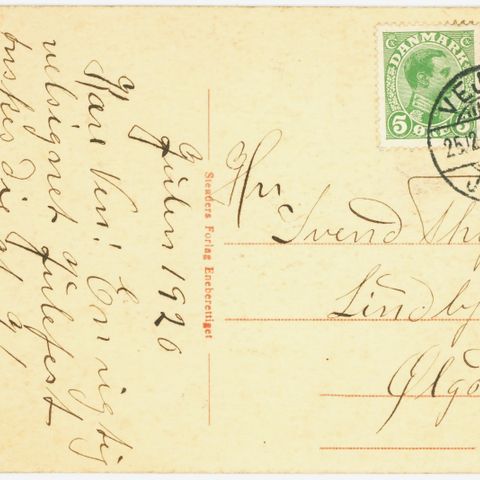 Julen 1920
Kære Ven! En rigtig
velsignet Julefest
ønskes Dig af
Stenders Forlag Eneberettiget
DANMARK
5 ØRE 5
VEJ
25.12
Hr.
Svend Thy
Lindby
Ølgo